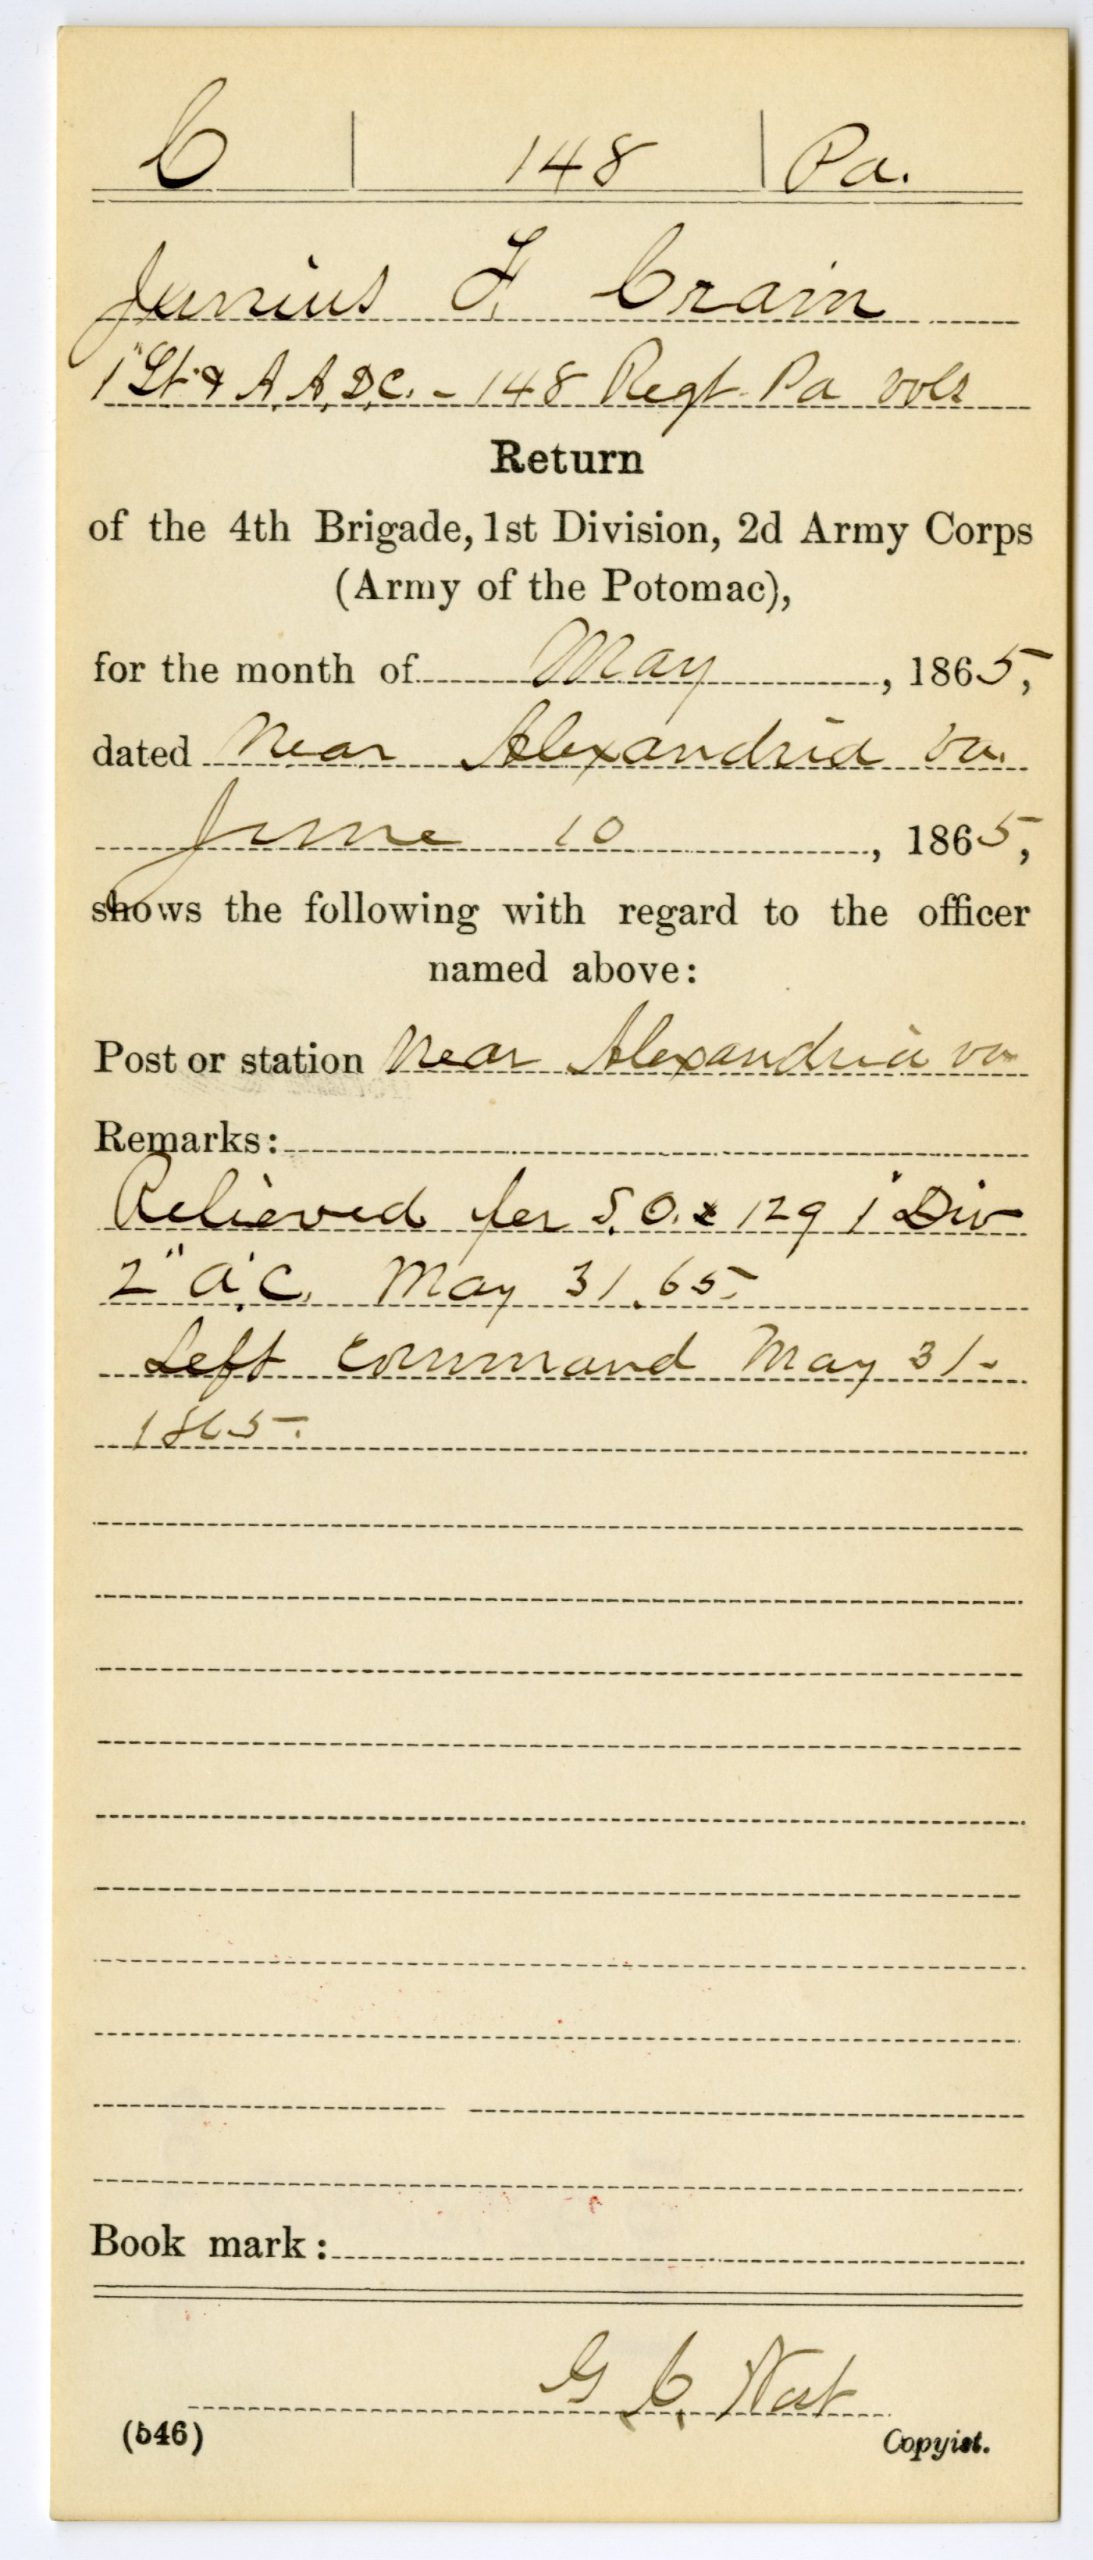 C | 148 | Pa.
Junius F. Crain
1" Lt. & A. A. D. C. - 148 Regt Pa vols
Return
of the 4th Brigade, 1st Division, 2d Army Corps
(Army of the Potomac),
for the month of May, 1865,
dated Near Alexandria Va.
June 10, 1865,
shows the following with regard to the officer
named above:
Post or station Near Alexandria Va
Remarks:
Relieved per S. O. 129 1" Div
2" A. C. May 31. 65
Left command May 31-
1865.
Book mark:
G. C.
(546)
Copyist.